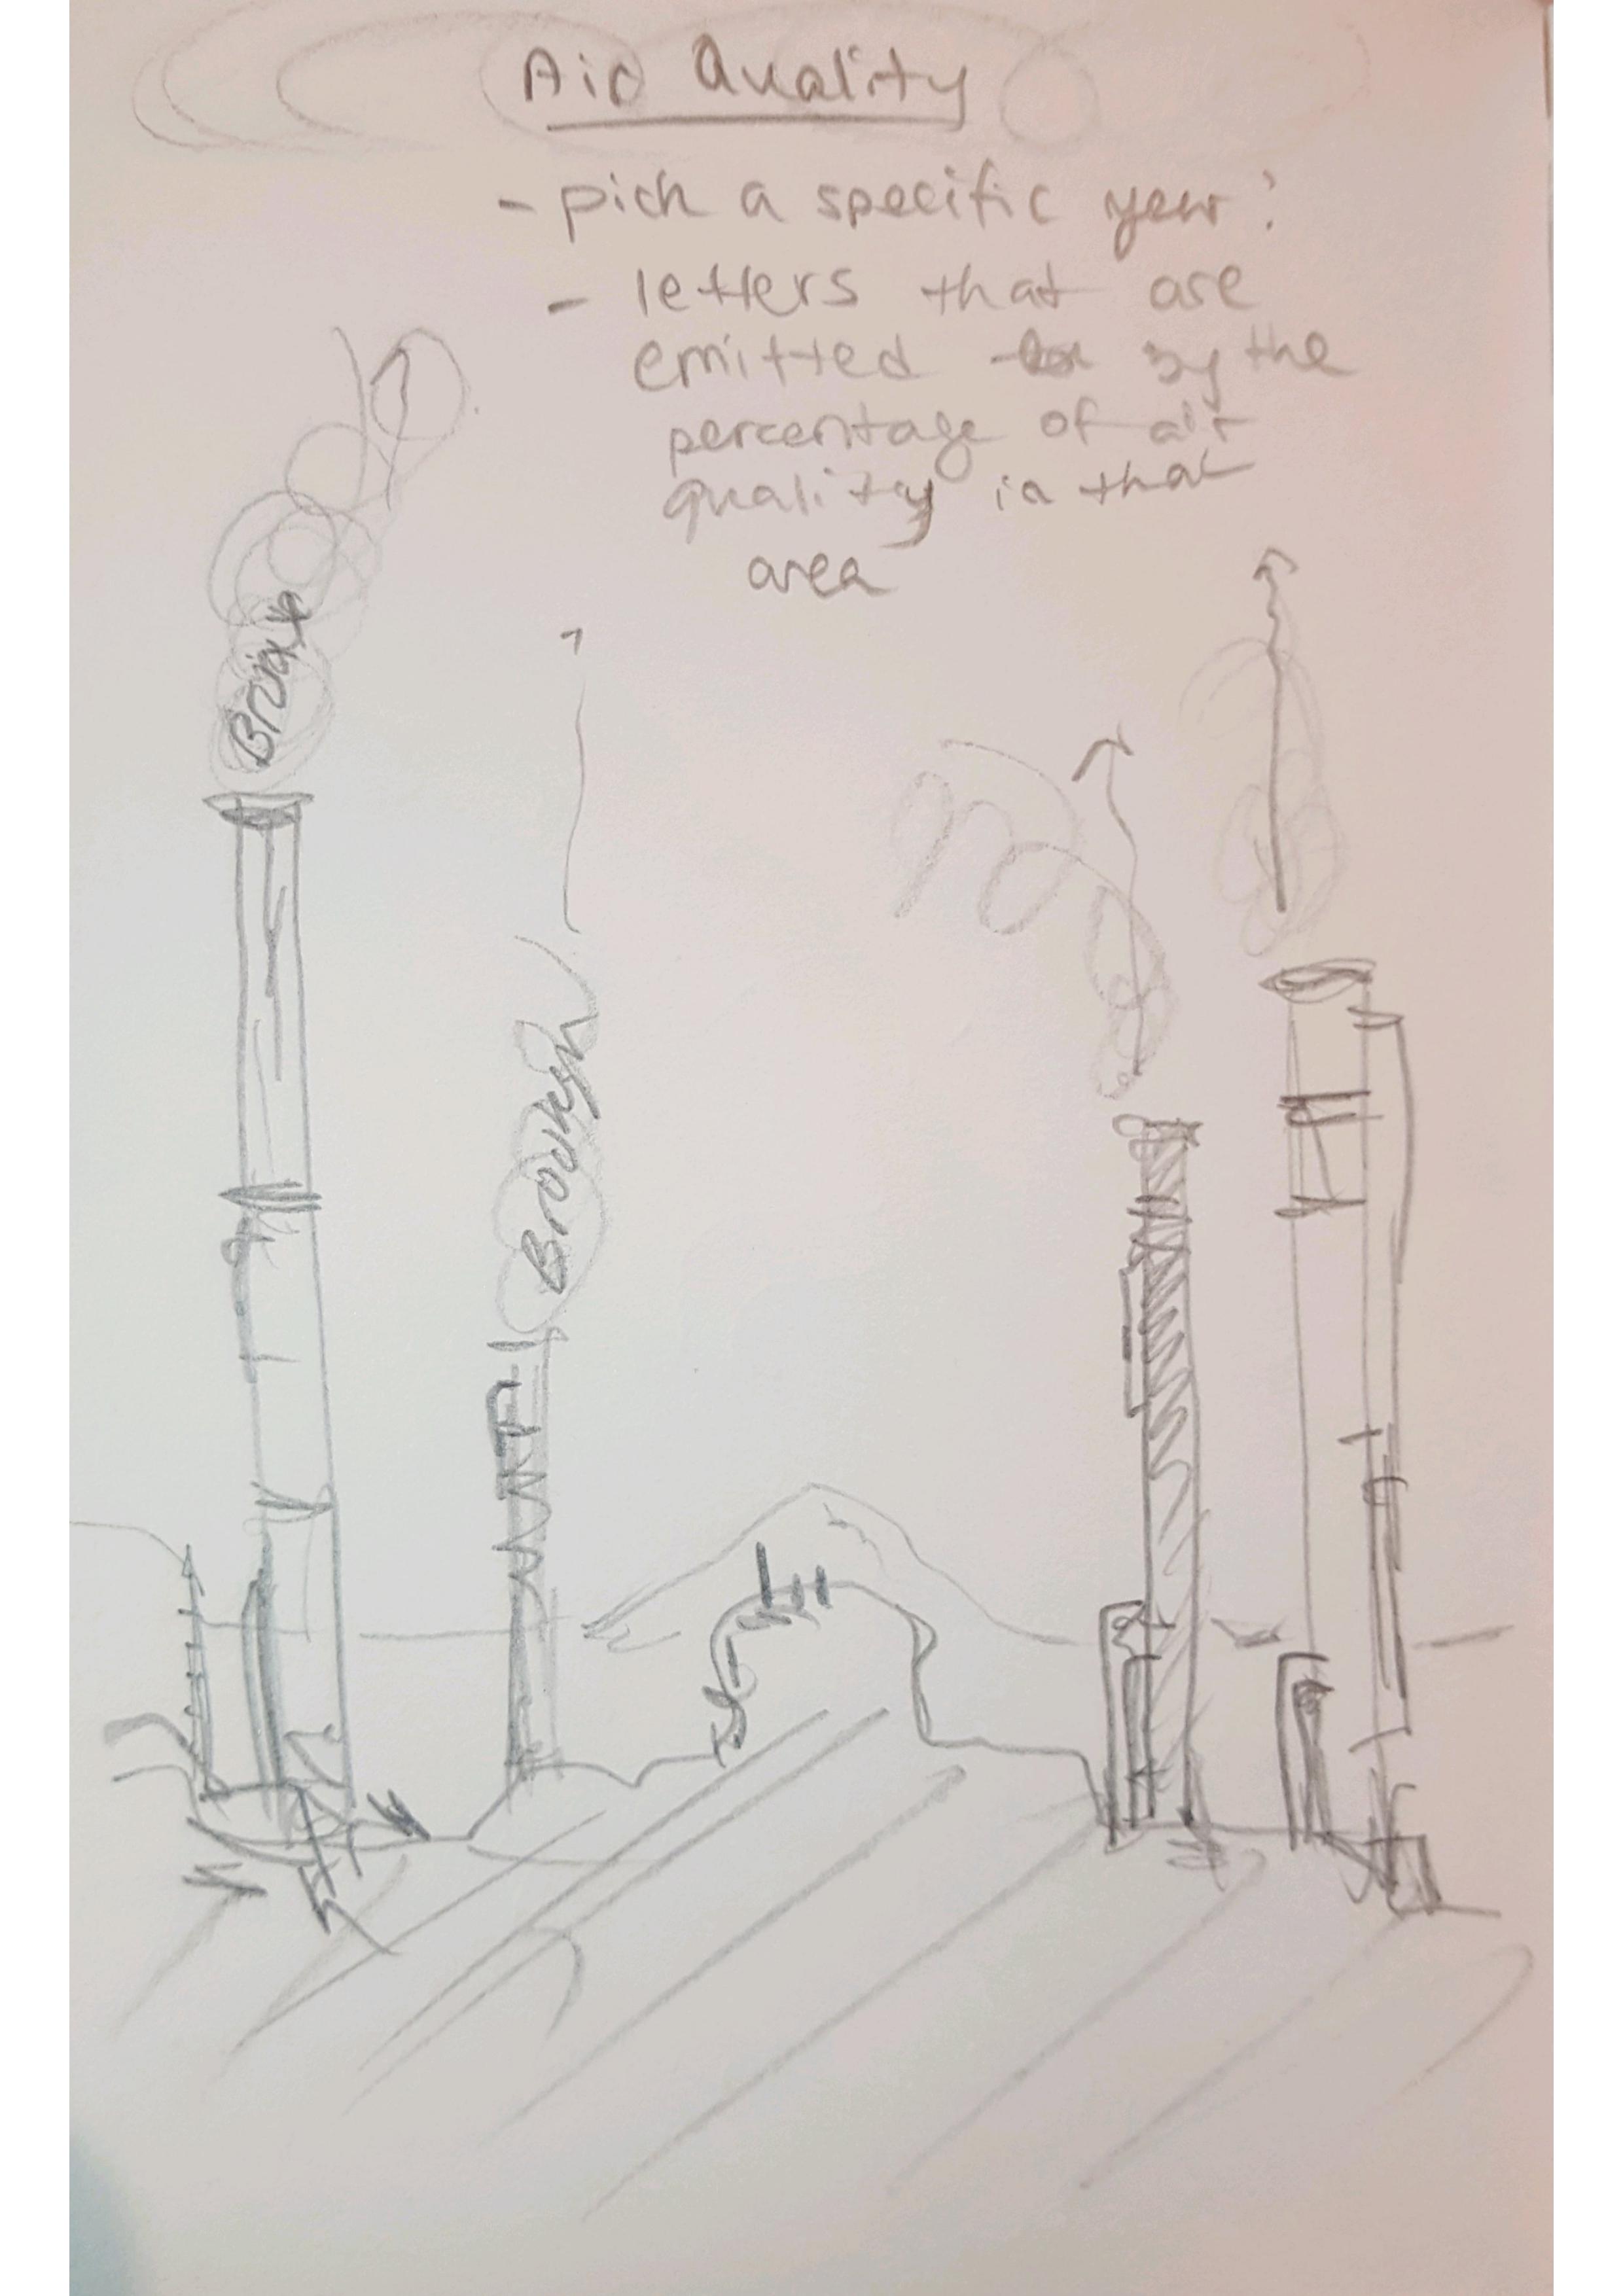 Air Quality
- pick a specific year?
- letters that are
emitted by the
percentage of air
quality in that
area
Bronx
Brooklyn